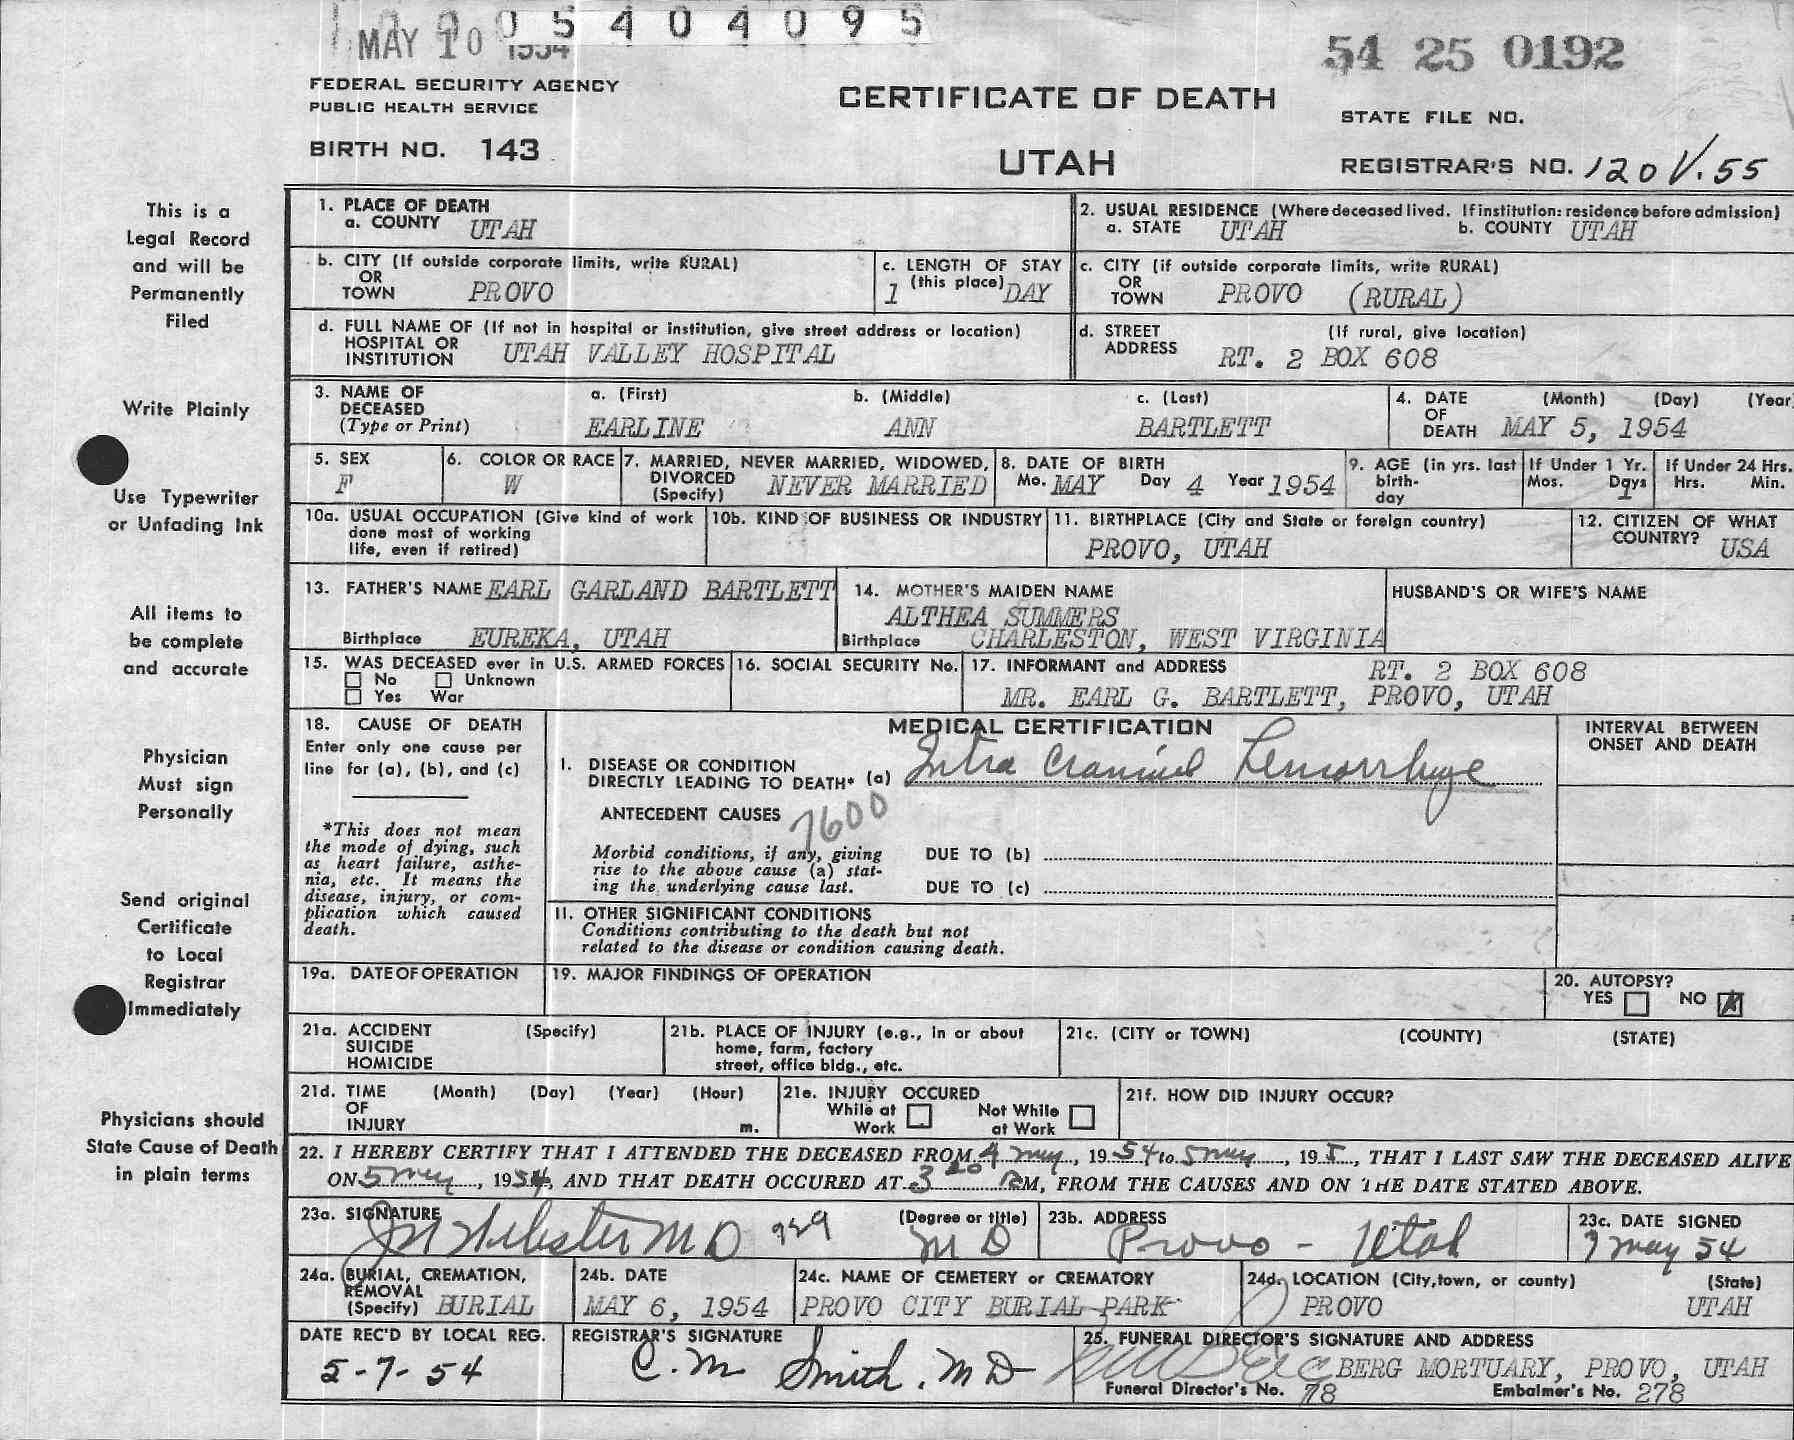 0005404095
MAY 10 1954
54 25 0192
FEDERAL SECURITY AGENCY
PUBLIC HEALTH SERVICE
CERTIFICATE OF DEATH
STATE FILE NO.
BIRTH NO. 143
UTAH
REGISTRAR'S NO. 120 V.55
This is a
Legal Record
and will be
Permanently
Filed
Write Plainly
Use Typewriter
or Unfading Ink
All items to
be complete
and accurate
Physician
Must sign
Personally
Send original
Certificate
to Local
Registrar
Immediately
Physicians should
State Cause of Death
in plain terms
1. PLACE OF DEATH
a. COUNTY UTAH
2. USUAL RESIDENCE (Where deceased lived. If institution: residence before admission)
a. STATE UTAH b. COUNTY UTAH
b. CITY (If outside corporate limits, write RURAL)
OR
TOWN PROVO
c. LENGTH OF STAY
(this place)
1 DAY
c. CITY (if outside corporate limits, write RURAL)
OR
TOWN PROVO (RURAL)
d. FULL NAME OF (If not in hospital or institution, give street address or location)
HOSPITAL OR
INSTITUTION UTAH VALLEY HOSPITAL
d. STREET (If rural, give location)
ADDRESS RT. 2 BOX 608
3. NAME OF a. (First) b. (Middle) c. (Last)
DECEASED
(Type or Print) EARLINE ANN BARTLETT
4. DATE (Month) (Day) (Year)
OF
DEATH MAY 5, 1954
5. SEX
F
6. COLOR OR RACE
W
7. MARRIED, NEVER MARRIED, WIDOWED,
DIVORCED
(Specify) NEVER MARRIED
8. DATE OF BIRTH
Mo. MAY Day 4 Year 1954
9. AGE (in yrs. last
birth-
day
If Under 1 Yr.
Mos. Days
1
If Under 24 Hrs.
Hrs. Min.
10a. USUAL OCCUPATION (Give kind of work
done most of working
life, even if retired)
10b. KIND OF BUSINESS OR INDUSTRY
11. BIRTHPLACE (City and State or foreign country)
PROVO, UTAH
12. CITIZEN OF WHAT
COUNTRY? USA
13. FATHER'S NAME EARL GARLAND BARTLETT
Birthplace EUREKA, UTAH
14. MOTHER'S MAIDEN NAME
ALTHEA SUMMERS
Birthplace CHARLESTON, WEST VIRGINIA
HUSBAND'S OR WIFE'S NAME
15. WAS DECEASED ever in U.S. ARMED FORCES
No Unknown
Yes War
16. SOCIAL SECURITY No.
17. INFORMANT and ADDRESS RT. 2 BOX 608
MR. EARL G. BARTLETT, PROVO, UTAH
18. CAUSE OF DEATH
Enter only one cause per
line for (a), (b), and (c)
*This does not mean
the mode of dying, such
as heart failure, asthe-
nia, etc. It means the
disease, injury, or com-
plication which caused
death.
MEDICAL CERTIFICATION
I. DISEASE OR CONDITION
DIRECTLY LEADING TO DEATH* (a) Intra Cranial Hemorrhage
ANTECEDENT CAUSES 7600
Morbid conditions, if any, giving
rise to the above cause (a) stat-
ing the underlying cause last.
DUE TO (b)
DUE TO (c)
II. OTHER SIGNIFICANT CONDITIONS
Conditions contributing to the death but not
related to the disease or condition causing death.
INTERVAL BETWEEN
ONSET AND DEATH
19a. DATE OF OPERATION
19. MAJOR FINDINGS OF OPERATION
20. AUTOPSY?
YES NO X
21a. ACCIDENT (Specify)
SUICIDE
HOMICIDE
21b. PLACE OF INJURY (e.g., in or about
home, farm, factory
street, office bldg., etc.
21c. (CITY or TOWN) (COUNTY) (STATE)
21d. TIME (Month) (Day) (Year) (Hour)
OF
INJURY m.
21e. INJURY OCCURED
While at Work Not While at Work
21f. HOW DID INJURY OCCUR?
22. I HEREBY CERTIFY THAT I ATTENDED THE DECEASED FROM 4 may, 1954 to 5 may, 195, THAT I LAST SAW THE DECEASED ALIVE
ON 5 may, 1954, AND THAT DEATH OCCURED AT 3 20 PM, FROM THE CAUSES AND ON THE DATE STATED ABOVE.
23a. SIGNATURE (Degree or title)
Webster M D 929 M D
23b. ADDRESS
Provo - Utah
23c. DATE SIGNED
7 may 54
24a. BURIAL, CREMATION,
REMOVAL
(Specify) BURIAL
24b. DATE
MAY 6, 1954
24c. NAME OF CEMETERY or CREMATORY
PROVO CITY BURIAL PARK
24d. LOCATION (City, town, or county) (State)
PROVO UTAH
DATE REC'D BY LOCAL REG.
5-7-54
REGISTRAR'S SIGNATURE
C. M. Smith, M D
25. FUNERAL DIRECTOR'S SIGNATURE AND ADDRESS
BERG MORTUARY, PROVO, UTAH
Funeral Director's No. 78 Embalmer's No. 278